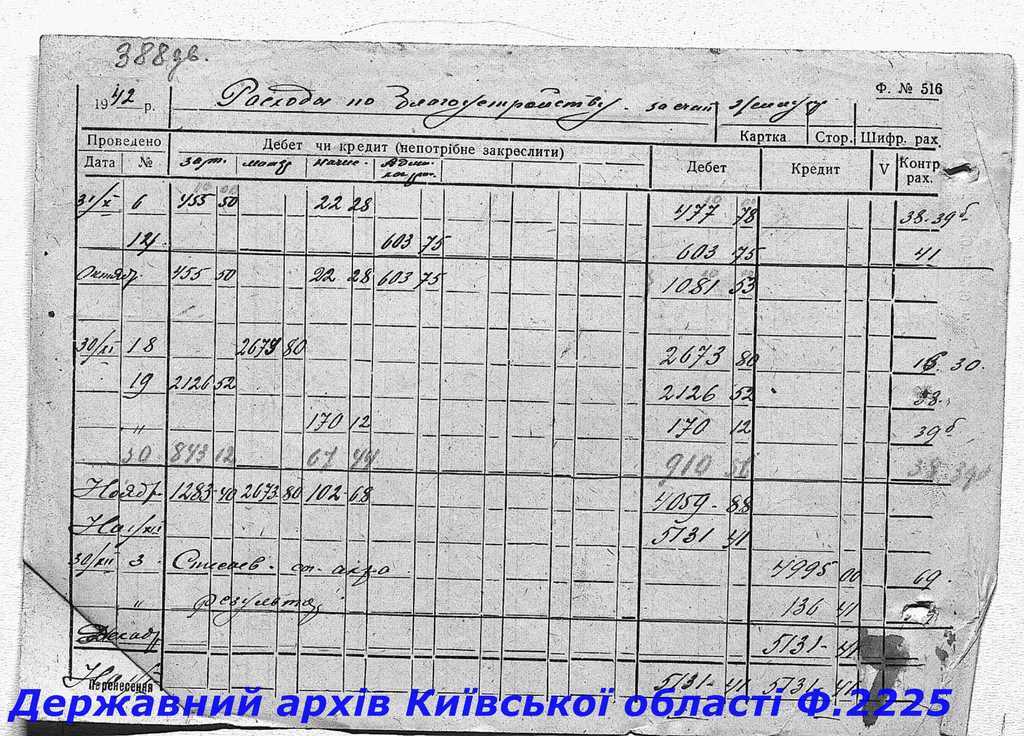 388 дв.
Ф. № 516
1942 р. Расходы по благоустройству. за счет
Картка Стор. Шифр. рах
Проведено Дебет чи кредит (непотрібне закреслити)
Дата № зарп. матер начис. Дебет Кредит V Контр рах.
31/X 6 455 50 22 28 477 78 38-39б
12 603 75 603 75 41
Октябр. 455 50 22 28 603 75 1081 53
30/XI 18 2673 80 2673 80 30.
19 2126 52 2126 52 38.
" 170 12 170 12 39б
843 12 67 44 910 56 38 39б
Ноябр. 1283-40 2673 80 102-68 4059-88
На 1/XII 5131 41
30/XII 3 Списаев. 4995 00 69
" результа 136 41
Декабр 5131-41
На
Перенесення 5131-41 5131 41
Державний архів Київської області Ф.2225